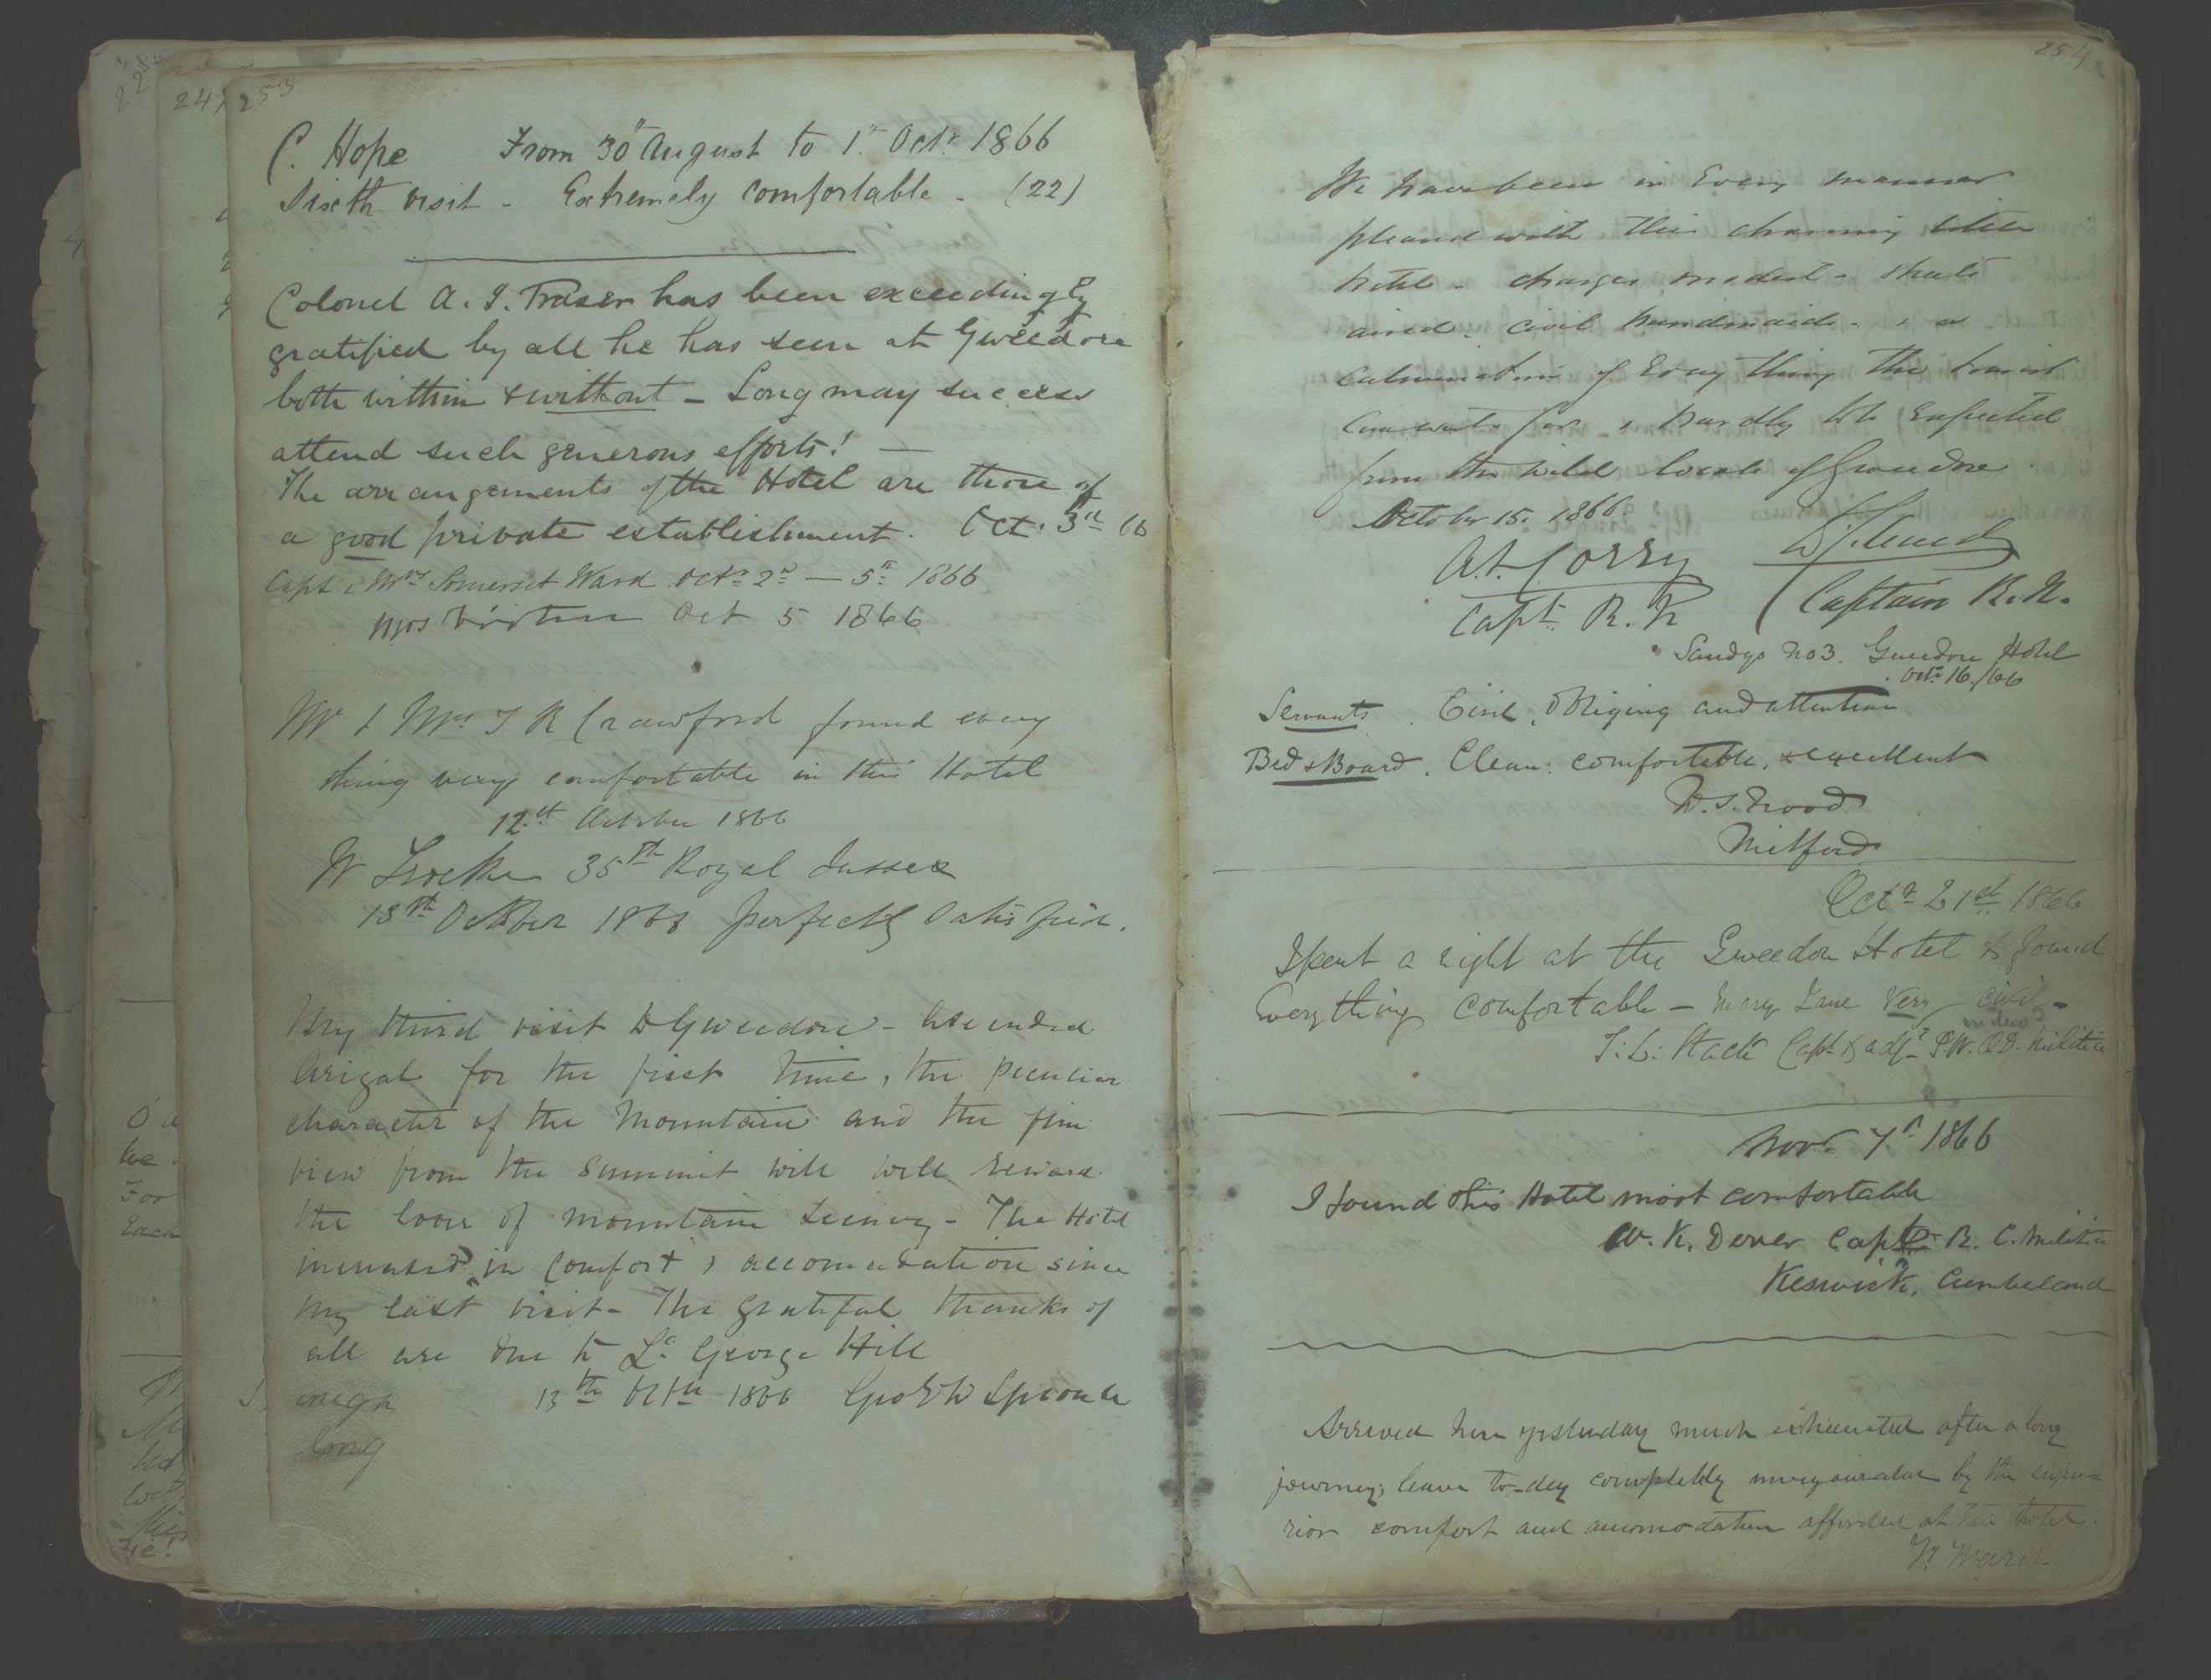 253
C. Hope From 30th August to 1st Octr. 1866
Sixth visit - Extremely comfortable - (22)
Colonel A. J. Fraser has been exceedingly
gratified by all he has seen at Gweedore
both within & without - Long may success
attend such generous efforts! —
The arrangements of the Hotel are those of
a good private establishment. Oct. 3rd 66
Capt & Mrs Somerset Ward Octr 2nd — 5th 1866
Mrs Oct 5 1866
Mr & Mrs J R Crawford found every
thing very comfortable in this Hotel
12th October 1866
W 35th Royal Sussex
13th October 1866 perfectly satisfied.
My third visit to Gweedore - Ascended
Arigal for the first time, the peculiar
character of the Mountain and the fine
view from the Summit will well reward
the lover of mountain Scenery - The Hotel
increased in comfort & accomodation since
my last visit - The grateful thanks of
all are due to Ld. George Hill
13th Octr 1866 Sproule
long
254
We have been in Every manner
pleased with this charming little
hotel - charges modest - sheets
aired. civil handmaids - & a
culmination of Every thing the tourist
can wish for & hardly to be Expected
from the wild locale of Gweedore.
October 15. 1866.
A. L. Corry
Capt. R. N
Captain R. N.
Sandys No 3. Gweedore Hotel
Octr 16/66
Servants. Civil, Obliging and attentive
Bed & Board. Clean: comfortable, & excellent
W. S. Wood
Milford
Octr 21st 1866
Spent a night at the Gweedore Hotel & found
Everything comfortable - Mary Jane Very civil -
indeed
T. L. Stack Capt & adjt P. W. O. D. Militia
Novr. 7th 1866
I found this Hotel most comfortable
W. K. Dover Capt R. C. Militia
Keswick, Cumberland
Arrived here yesterday much exhausted after a long
journey; leave to-day completely invigourated by the supe-
rior comfort and accomodation afforded at this hotel.